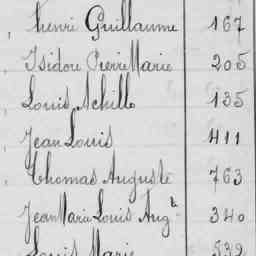 Henri Guillaume 167
Isidore Pierre Marie 205
Louis Achille 135
Jean Louis 411
Thomas Auguste 763
Jean Marie Louis Aug.te 340
Louis Marie 532